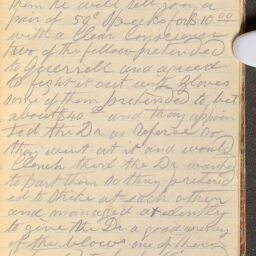 them he will sell you a
pair of 50¢ Specks for $10.00
with a Clear Conscience
two of the fellows pretended
to Querrell and agreed
to fight it out with Gloves
some of them pretended to bet
about $40 — and they appoin
ted the Dr as Referee So
they went at it and would
Clench then the Dr wanted
to part them So they pretend
ed to Strike at each other
and managed
to give the Dr a good many
of the blows one of them